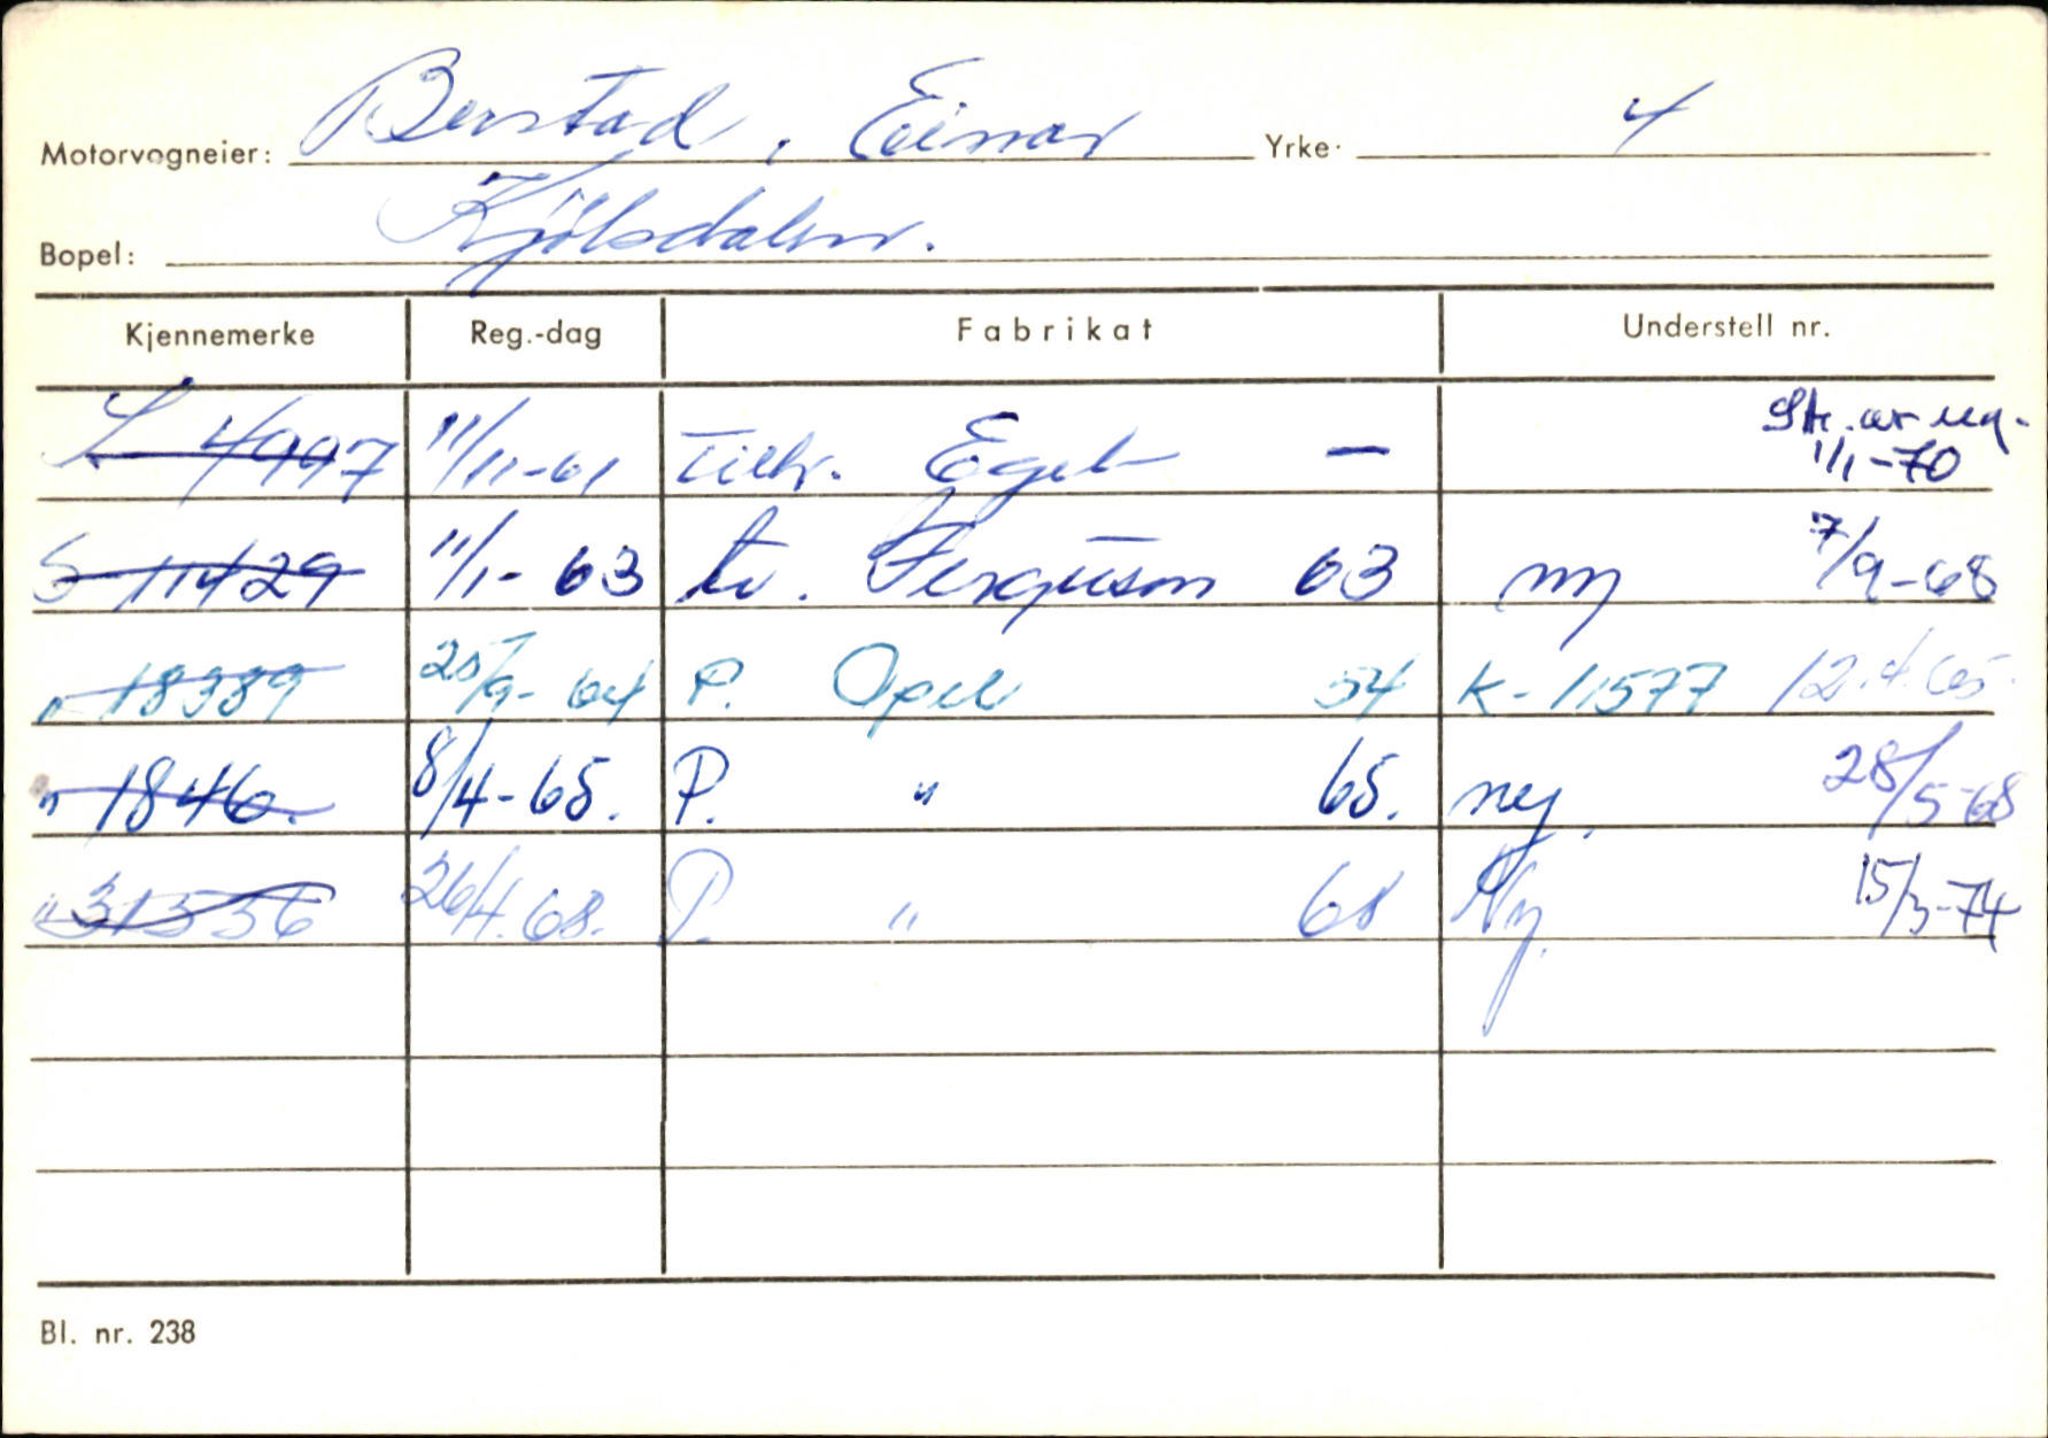 Motorvogneier: Berstad, Einar Yrke: 4
Bopel: Kjölsdalen.
Kjennemerke Reg.-dag Fabrikat Understell nr.
S 4997 11/11-61 Tilh. Egel — Str. av reg. 1/1-70
S-11429 11/1-63 tr. Ferguson 63 ny 7/9-68
" 18389 25/9-64 P. Opel 54 K-11577 12.4.65.
" 1846. 8/4-65. P. " 65. ny. 28/5-68
" 31536 26/4.68. P. " 68 Ny. 15/3-74
Bl. nr. 238